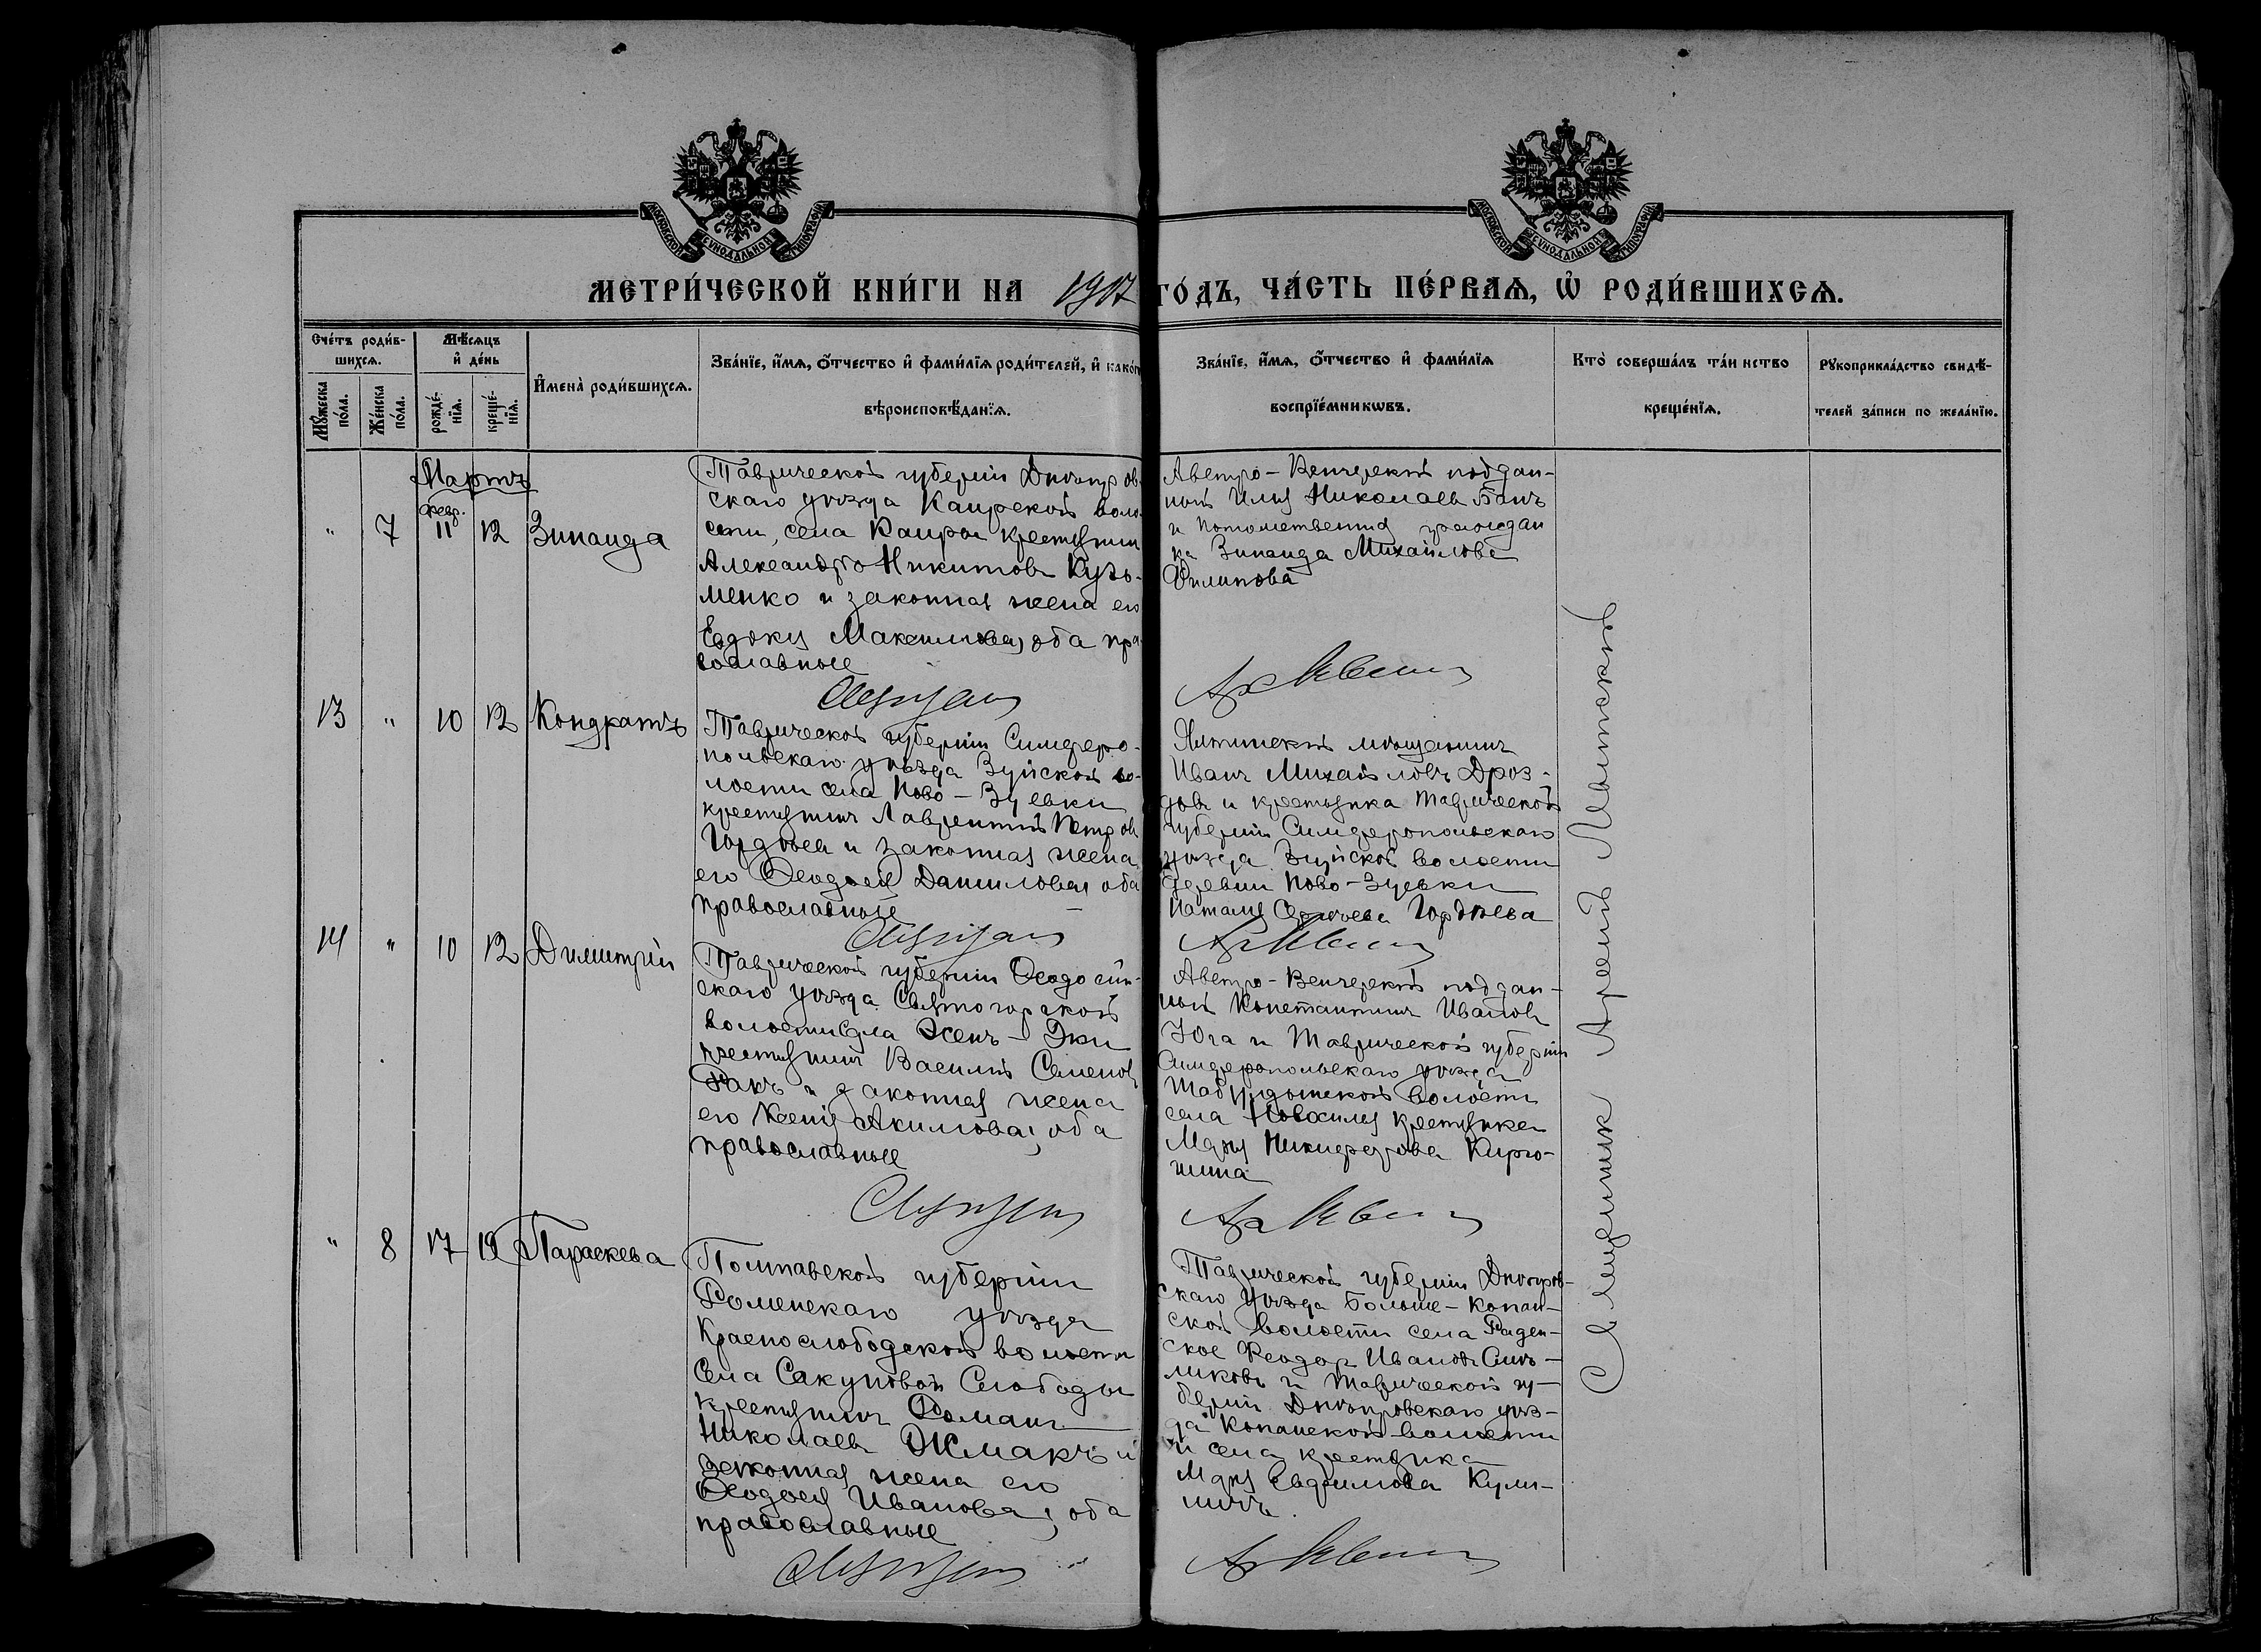 МОСКОВСКОЙ СѴНОДАЛЬНОЙ ТИПОГРАФІИ
МОСКОВСКОЙ СѴНОДАЛЬНОЙ ТИПОГРАФІИ
МЕТРИ́ЧЕСКОЙ КНИ́ГИ НА 1917 ГО́ДЪ, ЧА́СТЬ ПЕ́РВАѦ, Ѡ҆ РОДИ́ВШИХСѦ.
Сче́тъ роди́в-
шихсѧ.
Мꙋ́жеска по́ла.
Же́нска по́ла.
Мѣ́сѧцъ
и҆ де́нь
рожде́-
нїѧ.
креще́-
нїѧ.
И҆мена̀ роди́вшихсѧ.
Зва́нїе, и҆́мѧ, ѻ҆́тчество и҆ фами́лїѧ роди́телей, и҆ како́гѡ
вѣроисповѣ́данїѧ.
Зва́нїе, и҆́мѧ, ѻ҆́тчество и҆ фами́лїѧ
воспрїе́мникѡвъ.
Кто̀ соверша́лъ та́инство
креще́нїѧ.
Рꙋкоприкла́дство свидѣ́-
телей за́писи по жела́нїю.
Мартъ
февр.
" 7 11 12 Зинаида
Таврической губерніи Днѣпров-
скаго уѣзда Каирской воло-
сти, села Каиры крестьянин
Александръ Никитовъ Кузь-
менко и законная жена его
Евдокия Максимова, оба пра-
вославные
Австро-Венгерскій поддан-
ный Илия Николаевъ Банъ
и потомственная граждан
ка Зинаида Михаилова
Филипова
13 " 10 12 Кондратъ
Таврической губерніи Симферо-
польскаго уѣзда Зуйской во-
лости села Ново-Зуевки
крестьянинъ Лаврентій Петровъ
Гордѣев и законная жена
его Ѳеодосия Данилова, оба
православные
Ялтинскій мѣщанинъ
Иванъ Михаиловъ Дроз-
довъ и крестьянка Таврической
губерніи Симферопольскаго
уѣзда Зуйской волости
деревни Ново-Зуевки
Наталия Сергѣева Гордѣева
14 " 10 12 Димитрій
Таврической губерніи Ѳеодосій-
скаго уѣзда Святогорской
волости села Джен-Эки
крестьянин Василій Семеновъ
Ракъ и законная жена
его Ксения Акимова, оба
православные
Австро-Венгерскій поддан-
ный Константинъ Ивановъ
Юга и Таврической губерніи
Симферопольскаго уѣзда
волости
села крестьянка
Мария Никифорова
" 8 17 19 Параскева
Полтавской губерніи
Роменскаго уѣзда
Краснослободской волости
Села Сакуновой Слободы
крестьянинъ Романъ
Николаевъ Жмакъ и
законная жена его
Ѳеодосия Иванова, оба
православные
Таврической губерніи Днѣпров-
скаго уѣзда Больше-Копан-
ской волости села Раден-
ское Ѳеодор Ивановъ
и Таврической гу-
берніи Днѣпровскаго уѣз-
да Копанской волости
и села крестьянка
Мария Евфимова
Священник